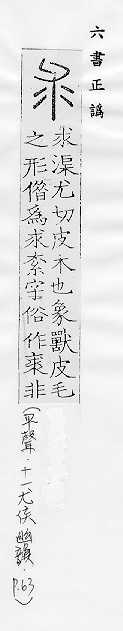 六書正譌
求渠尤切皮衣也象獸皮毛
之形借爲求索字俗作裘非
(平聲．十一尤侯幽韻．P.63)